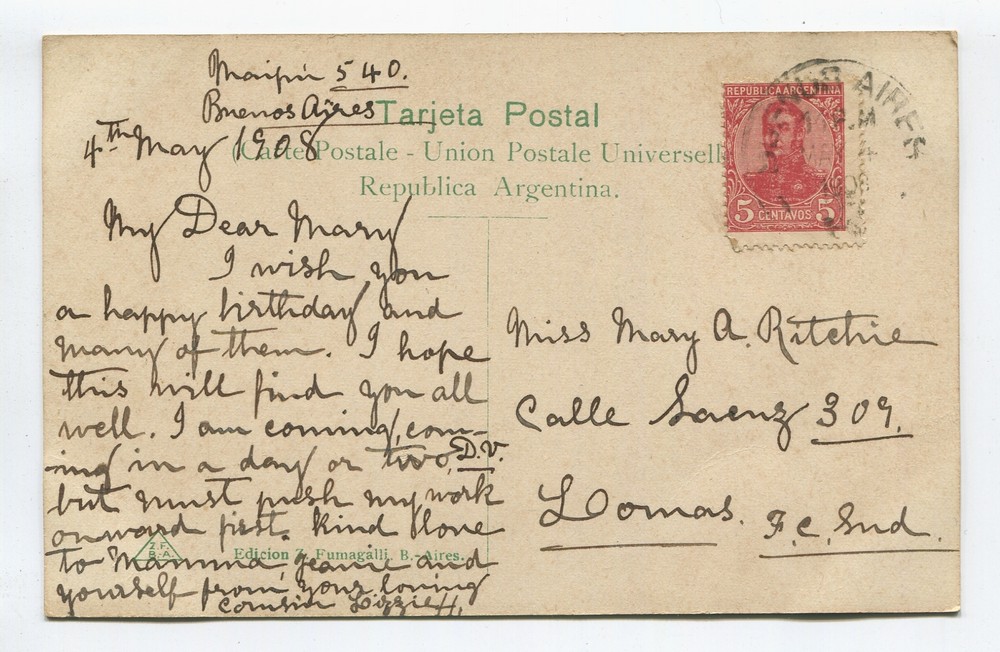 Maipú 540.
Buenos Aires
4th May 1908
Tarjeta Postal
Carte Postale - Union Postale Universelle
Republica Argentina.
REPUBLICA ARGENTINA
5 CENTAVOS 5
BUENOS AIRES
My Dear Mary
I wish you
a happy birthday and
many of them. I hope
this will find you all
well. I am coming, com-
ing in a day or two, D.V.
but must push my work
onward first. Kind love
to Mamma, Jeanie and
yourself from your loving
Cousin Lizzie H.
Z.F.
B.-A.
Edicion Z. Fumagalli, B.-Aires.
Miss Mary A. Ritchie
Calle Saenz 309.
Lomas. F.C. Sud.